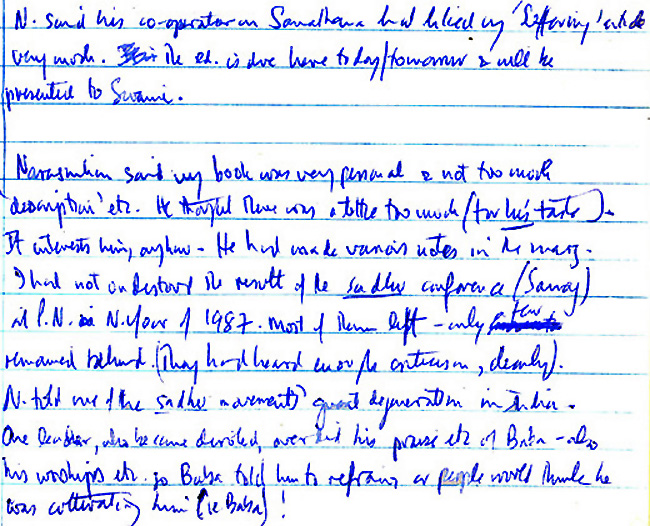 N. said his co-operator on Sanathana had liked my 'Suffering' article
very much. The ed. is due here today/tomorrow & will be
presented to Swami.
Narasimhan said my book was very personal & not too much
description' etc. He thought there was a little too much (for his taste).
It interests him, anyhow - He had made various notes in the marg.
I had not understood the result of the sadhu conference
at P.N. in N.Year of 1987. Most of them left - only few
remained behind. (They had heard enough criticism, clearly).
N. told me of the sadhu movements' great degeneration in India.
One leader, who became devoted, over did his praise etc of Baba - also
his worships etc. so Baba told him to refrain, or people would think he
was cultivating him (ie Baba)!